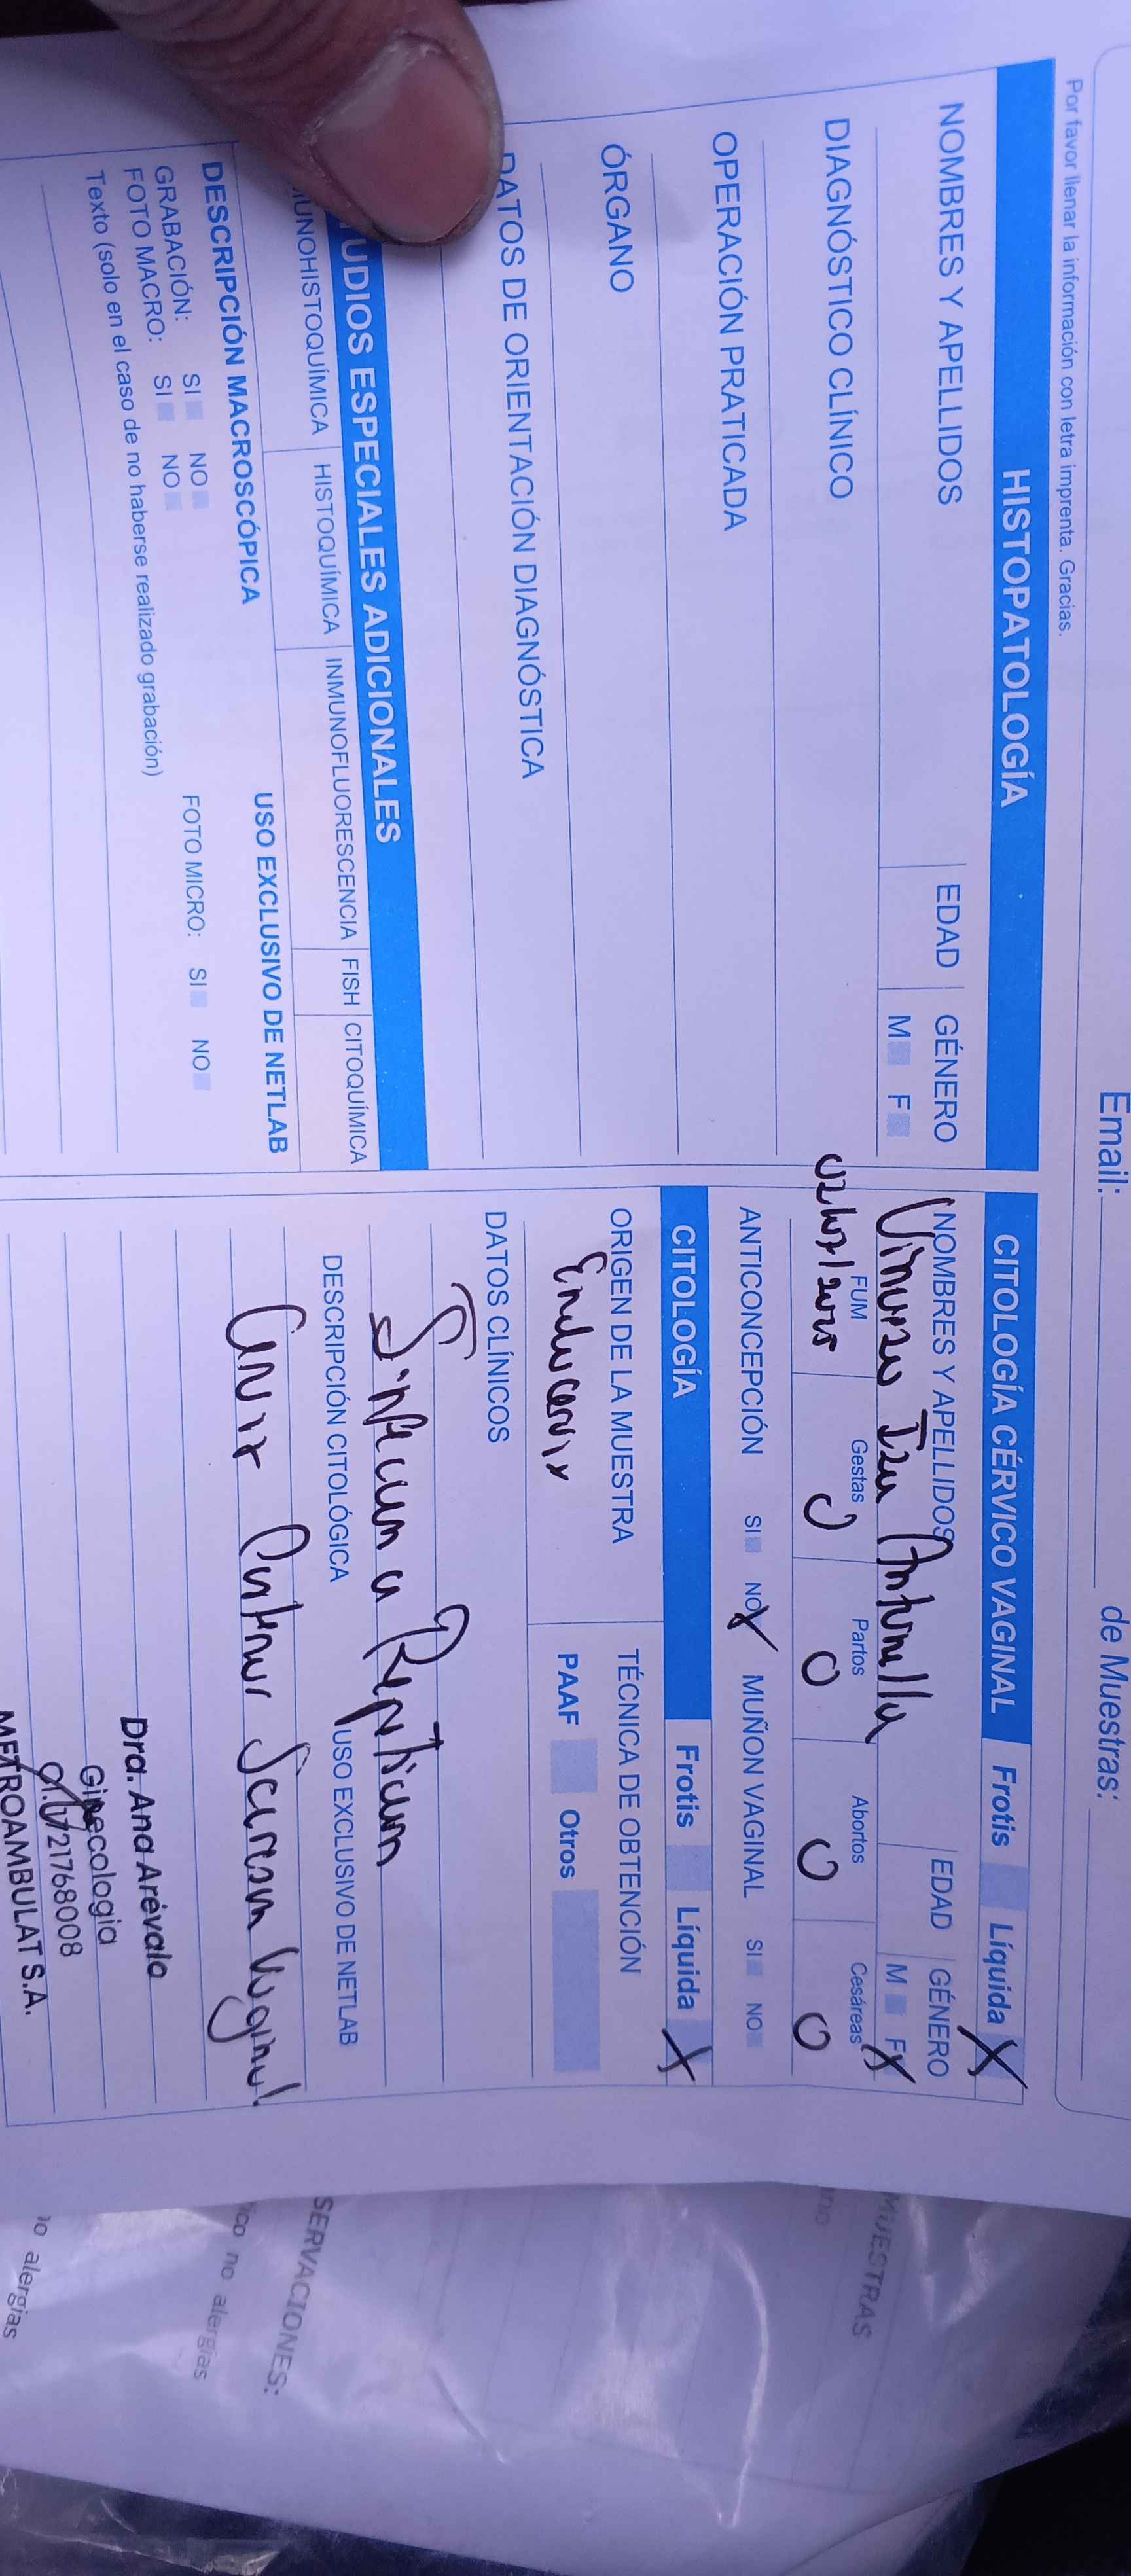 Email:
de Muestras:
Por favor llenar la información con letra imprenta. Gracias.
HISTOPATOLOGÍA
NOMBRES Y APELLIDOS
EDAD
GÉNERO
M F
DIAGNÓSTICO CLÍNICO
OPERACIÓN PRATICADA
ÓRGANO
DATOS DE ORIENTACIÓN DIAGNÓSTICA
UDIOS ESPECIALES ADICIONALES
MUNOHISTOQUÍMICA HISTOQUÍMICA INMUNOFLUORESCENCIA FISH CITOQUÍMICA
DESCRIPCIÓN MACROSCÓPICA USO EXCLUSIVO DE NETLAB
GRABACIÓN: SI NO
FOTO MACRO: SI NO FOTO MICRO: SI NO
Texto (solo en el caso de no haberse realizado grabación)
CITOLOGÍA CÉRVICO VAGINAL Frotis Líquida X
NOMBRES Y APELLIDOS EDAD GÉNERO
Antonella
M F X
FUM Gestas Partos Abortos Cesáreas
0 0 0 0
ANTICONCEPCIÓN SI NO X MUÑON VAGINAL SI NO
CITOLOGÍA Frotis Líquida X
ORIGEN DE LA MUESTRA TÉCNICA DE OBTENCIÓN
Endocervix
PAAF Otros
DATOS CLÍNICOS
DESCRIPCIÓN CITOLÓGICA USO EXCLUSIVO DE NETLAB
Cervix Posterior Vaginal
Dra. Ana Arévalo
Ginecologia
1721768008
METROAMBULAT S.A.
MUESTRAS
SERVACIONES:
ico no alergias
io alergias